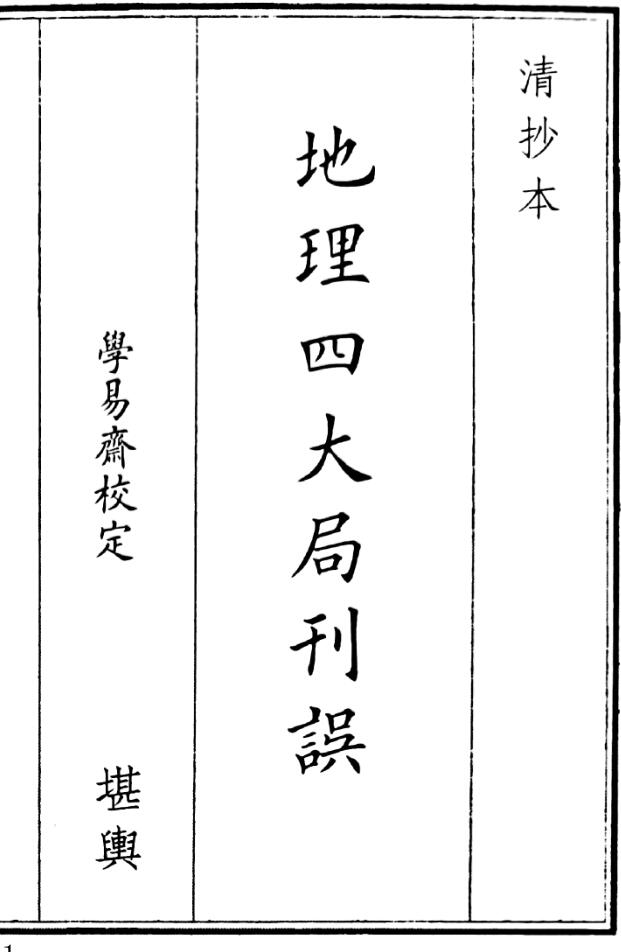 清抄本
地理四大局刊誤
學易齋校定
堪輿
1